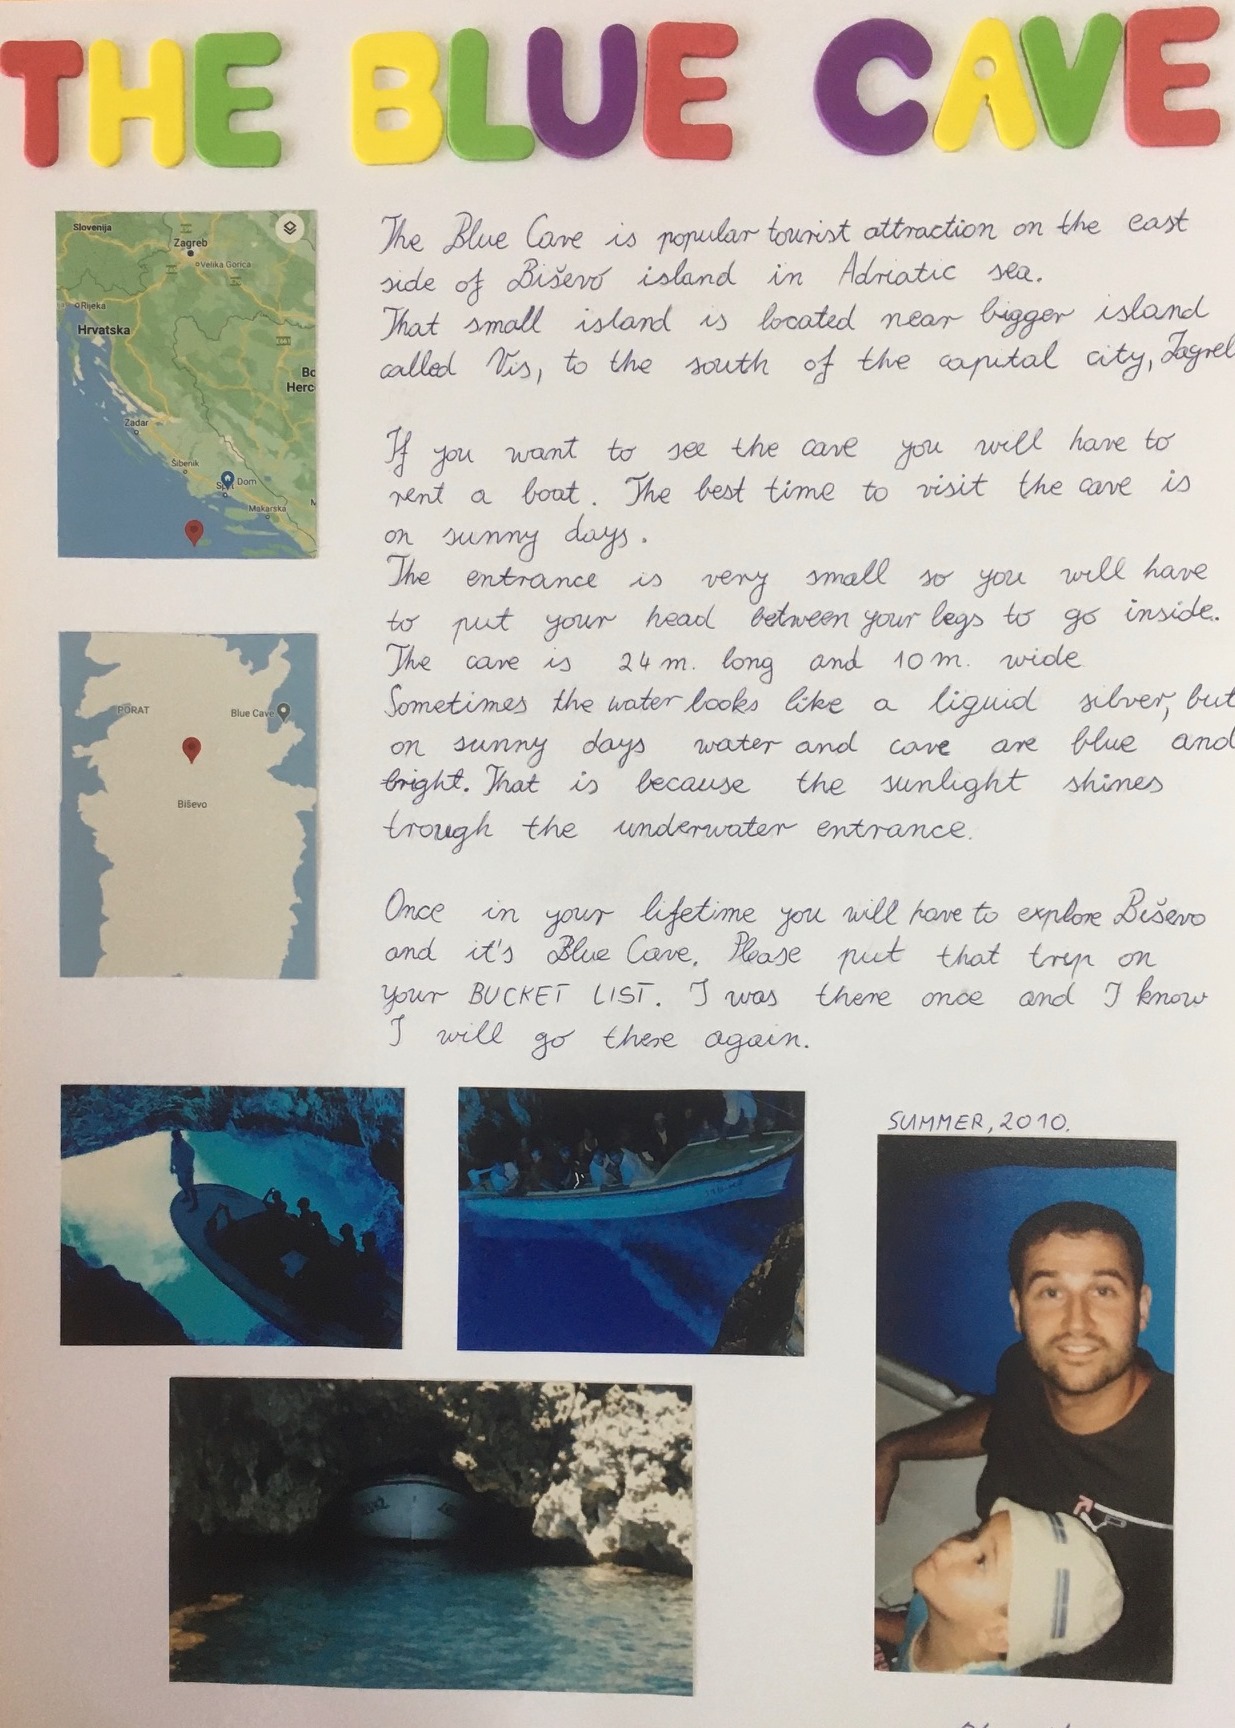 THE BLUE CAVE
Slovenija
Zagreb
Velika Gorica
Rijeka
Hrvatska
Bo
Herc
Zadar
Šibenik
Split
Dom
Makarska
M
PORAT
Blue Cave
Biševo
The Blue Cave is popular tourist attraction on the east
side of Biševo island in Adriatic sea.
That small island is located near bigger island
called Vis, to the south of the capital city, Zagreb
If you want to see the cave you will have to
rent a boat. The best time to visit the cave is
on sunny days.
The entrance is very small so you will have
to put your head between your legs to go inside.
The cave is 24 m. long and 10 m. wide
Sometimes the water looks like a liquid silver, but
on sunny days water and cave are blue and
bright. That is because the sunlight shines
trough the underwater entrance.
Once in your lifetime you will have to explore Biševo
and it's Blue Cave. Please put that trip on
your BUCKET LIST. I was there once and I know
I will go there again.
SUMMER, 2010.